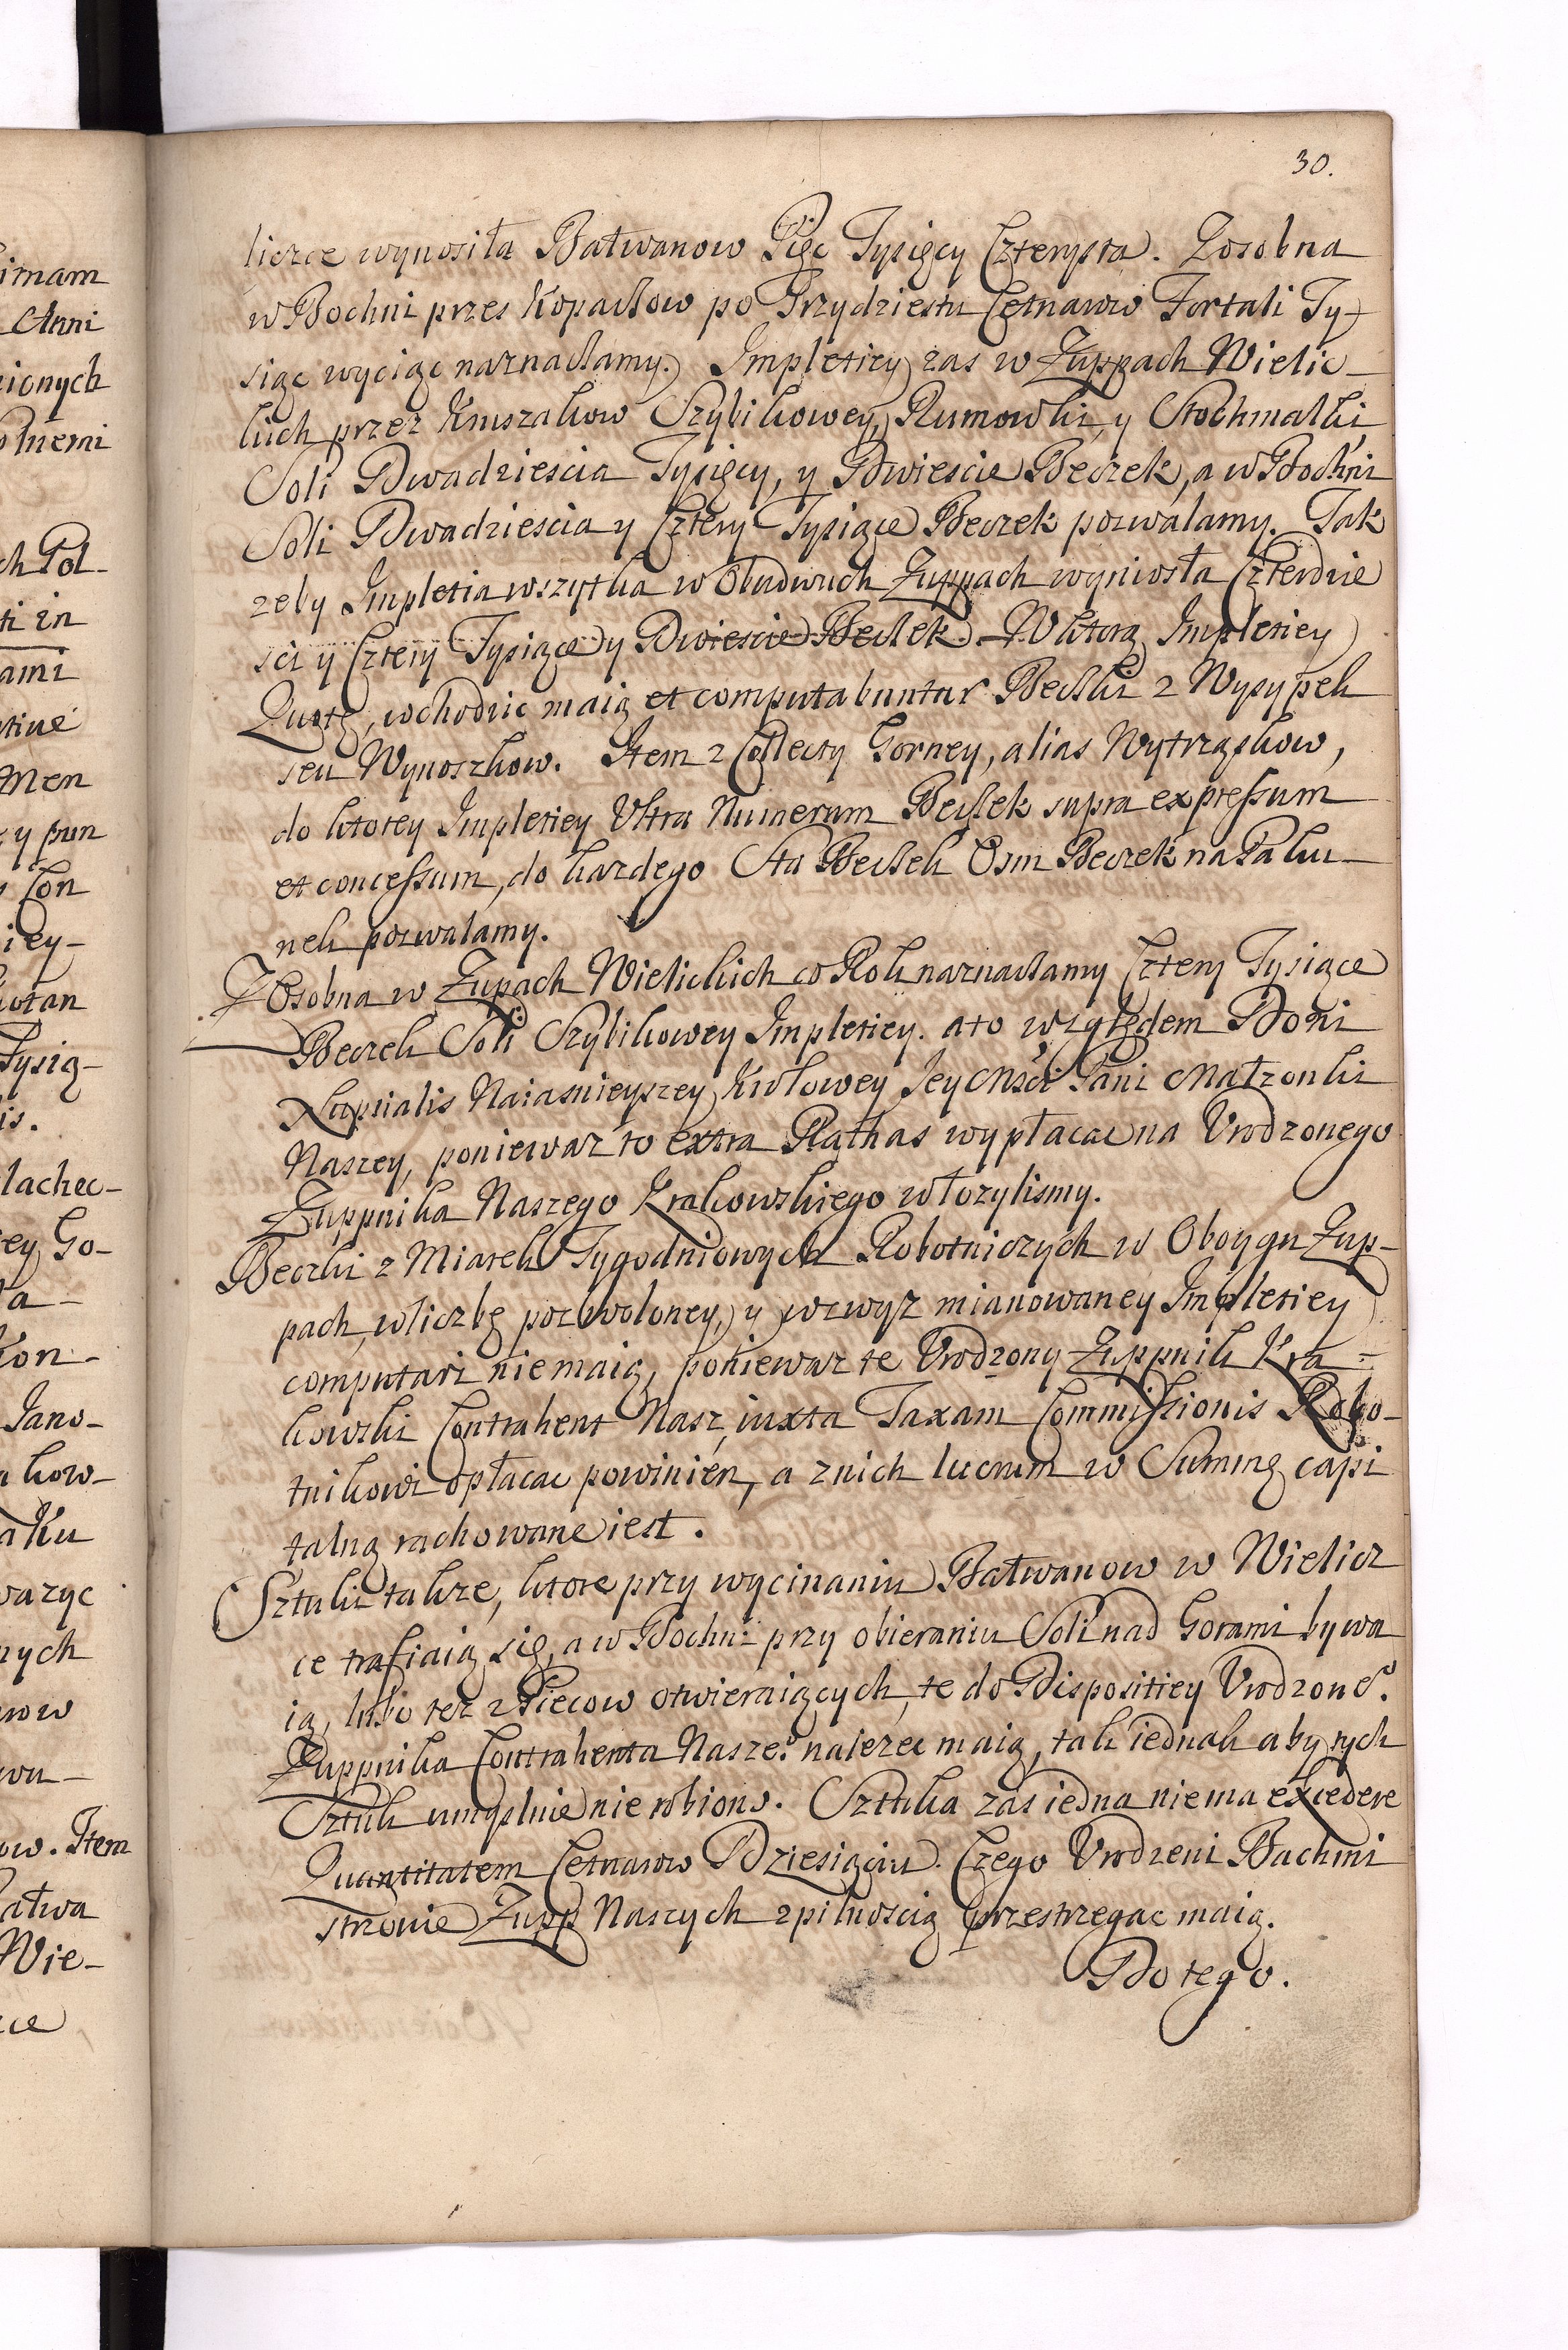 30.
liczce wynosiła Bałwanow Pięc Tysięcy Czterysta. Zosobna
w Bochni przes Kopaczow po Trzydziestu Cetnarow Fortali Ty-
siąc wyciąc naznaczamy. Impletiey zas w Zuppach Wielic-
kich przez Kruszakow Szybikowey, Rumowki, y Stochmalki
Soli Dwadziescia Tysięcy, y Dwiescie Beczek, a w Bochni
Soli Dwadziescia y Cztery Tysiące Beczek pozwalamy. Tak
zeby Impletia wszytka w Obudwuch Zuppach wyniosła Czterdzie
sci y Cztery Tysiące y Dwiescie Beczek. W ktorą Impletiey
Quotę, wchodzic maią et computabuntur Beczki z Wysypek
seu Wynoszkow. Item z Collecty Gorney, alias Wytrząskow,
do ktorey Impletiey Ultra Numerum Beczek supra expressum
et concessum, do kazdego Sta Beczek Osm Beczek na Paku-
nek pozwalamy.
Zosobna w Zupach Wielickich co Rok naznaczamy Cztery Tysiące
Beczek Soli Szybikowey Impletiey. a to względem Doni
Nuptialis Naiasnieyszey Krolowey Jey Msci Pani Małzonki
Naszey, poniewaz to extra Rathas wypłacac na Urodzonego
Zuppnika Naszego Krakowskiego włozylismy.
Beczki z Miarek Tygodniowych Robotniczych w Oboygu Zup-
pach, w liczbę pozwoloney, y wzwyz mianowaney Impletiey
computari niemaią, poniewaz te Urodzony Zuppnik Kra-
kowski Contrahent Nasz, iuxta Taxam Commissionis Robo-
tnikowi opłacac powinien, a z nich lucrum w Summę capi
talną rachowane iest.
Sztuki takze, ktore przy wycinaniu Bałwanow w Wielicz
ce trafiaią się, a w Bochni przy obieraniu Soli nad Gorami bywa
ią, lubo tez z Piecow otwieraiących, te do Dispositiey Urodzone.
Zuppnika Contrahenta Nasze. nalezec maią, tak iednak aby tych
Sztuk umyslnie nie robiono. Sztuka zas iedna niema excedere
Quantitatem Cetnarow Dziesięciu. Czego Urodzeni Bachmi
strzowie Zupp Naszych z pilnoscią przestrzegac maią.
Do tego.